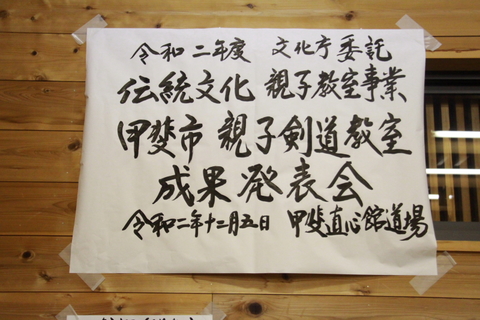 令和二年度 文化庁委託
伝統文化 親子教室事業
甲斐市 親子剣道教室
成果発表会
令和二年十二月五日 甲斐直心館道場